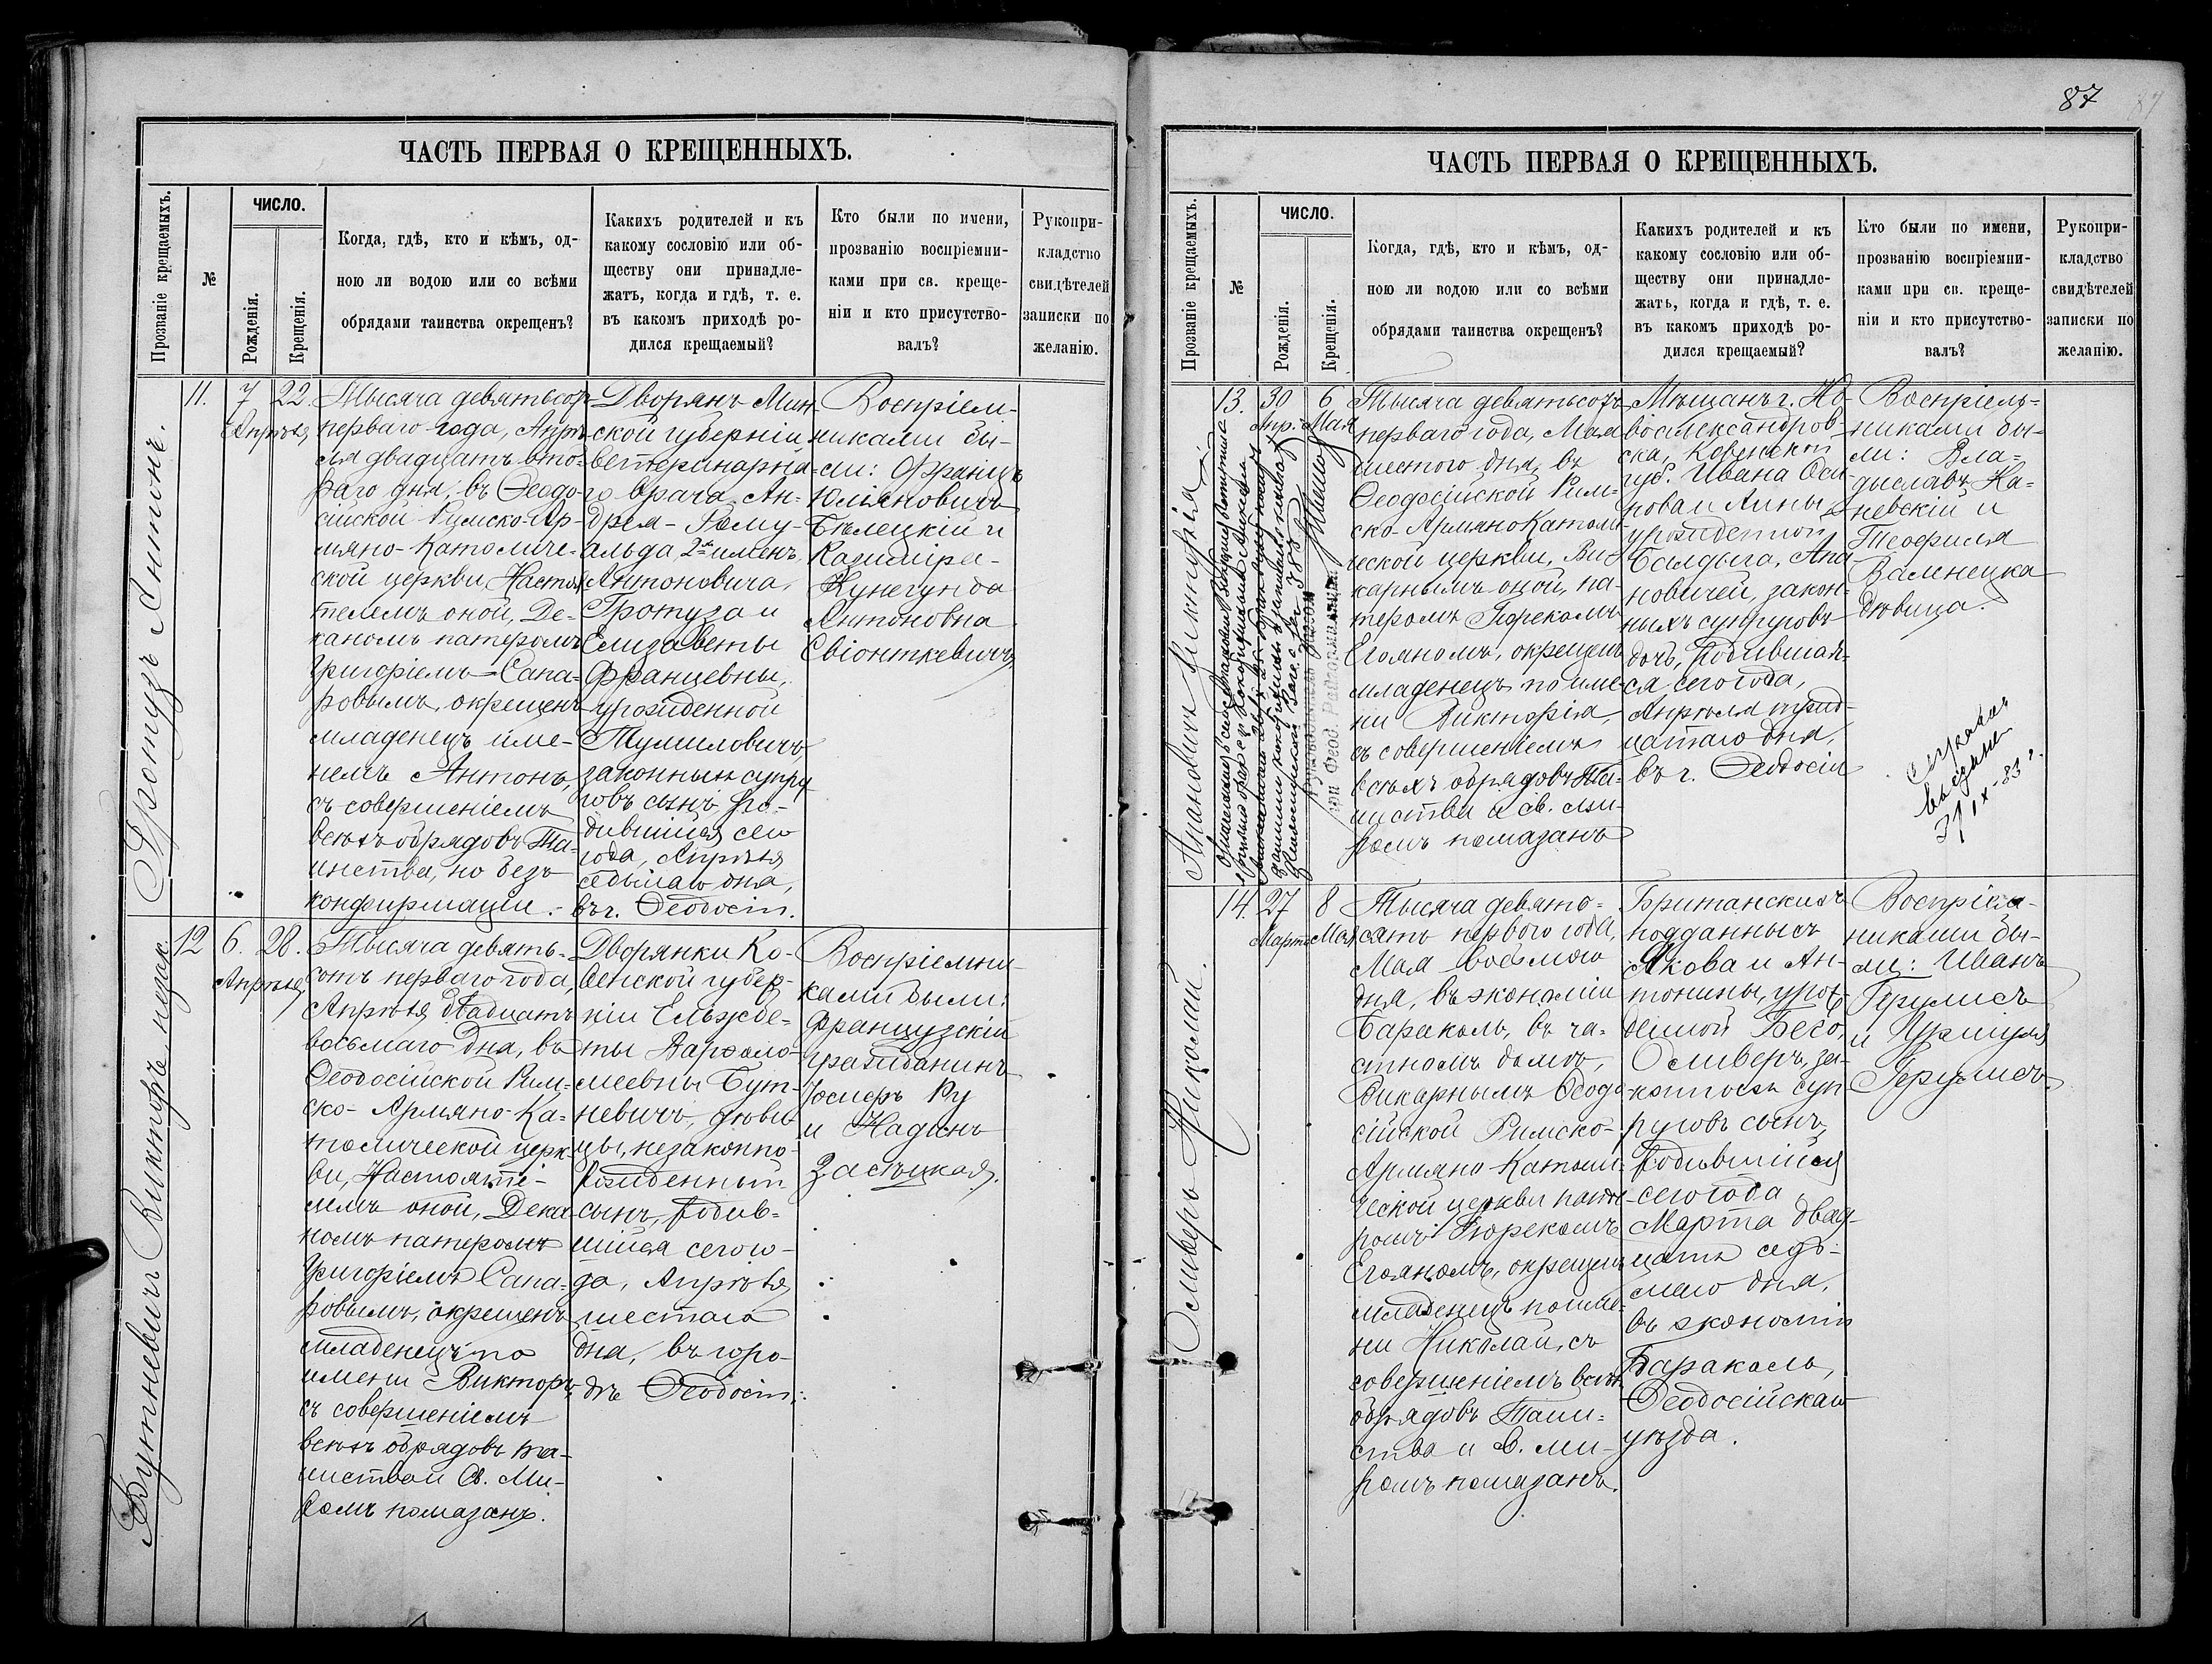 ЧАСТЬ ПЕРВАЯ О КРЕЩЕННЫХЪ.
Прозваніе крещаемыхъ.
№
ЧИСЛО.
Рожденія.
Крещенія.
Когда, гдѣ, кто и кѣмъ, од-
ною ли водою или со всѣми
обрядами таинства окрещенъ?
Какихъ родителей и къ
какому сословію или об-
ществу они принадле-
жатъ, когда и гдѣ, т. е.
въ какомъ приходѣ ро-
дился крещаемый?
Кто были по имени,
прозванію воспріемни-
ками при св. креще-
ніи и кто присутство-
валъ?
Рукопри-
кладство
свидѣтелей
записки по
желанію.
Гротузъ Антонъ.
11.
7
Апрѣля
22.
Тысяча девятьсотъ
перваго года, Апрѣ-
ля двадцать вто-
раго дня, въ Ѳеодо-
сійской Римско-Ар-
мяно-Католиче-
ской церкви, Настоя-
телемъ оной, Де-
каномъ патеромъ
Григоріемъ Сапа-
ровымъ, окрещенъ
младенецъ име-
немъ Антонъ,
съ совершеніемъ
всѣхъ обрядовъ Та-
инства, но безъ
конфирмаціи.
Дворянъ Мин-
ской губерніи,
ветеринарна-
го врача Ан-
дрея-Рому-
альда 2хъ именъ
Антоновича
Гротуза и
Елизаветы
Францевны,
урожденной
Тумиловичъ,
законныхъ супру-
говъ сынъ, ро-
дившійся сего
года, Апрѣля
седьмаго дня,
въ г. Ѳеодосіи.
Воспріем-
никами бы-
ли: Францъ
Юліановичъ
Бѣлецкій и
Казиміра-
Кунегунда
Антоновна
Свіонткевичъ
Бутневичъ Викторъ, незак.
12
6.
Апрѣля
28.
Тысяча девять-
сотъ перваго года,
Апрѣля двадцать
восьмаго дня, въ
Ѳеодосійской Рим-
ско-Армяно-Ка-
толической церк-
ви, Настояте-
лемъ оной, Дека-
номъ патеромъ
Григоріемъ Сапа-
ровымъ, окрещенъ
младенецъ по
имени Викторъ,
съ совершеніемъ
всѣхъ обрядовъ та-
инства и Св. Ми-
ромъ помазанъ.
Дворянки Ко-
венской губер-
ніи Ельжбе-
ты Варѳоло-
меевны Бут-
невичъ, дѣви-
цы, незаконно-
рожденный
сынъ, родив-
шійся сего го-
да, Апрѣля
шестаго
дня, въ горо-
дѣ Ѳеодосіи.
Воспріемни-
ками были:
Французскій
гражданинъ
Іосифъ Ру
и Надинъ
Засѣцкая.
87
ЧАСТЬ ПЕРВАЯ О КРЕЩЕННЫХЪ.
Прозваніе крещаемыхъ.
№
ЧИСЛО.
Рожденія.
Крещенія.
Когда, гдѣ, кто и кѣмъ, од-
ною ли водою или со всѣми
обрядами таинства окрещенъ?
Какихъ родителей и къ
какому сословію или об-
ществу они принадле-
жатъ, когда и гдѣ, т. е.
въ какомъ приходѣ ро-
дился крещаемый?
Кто были по имени,
прозванію воспріемни-
ками при св. креще-
ніи и кто присутство-
валъ?
Рукопри-
кладство
свидѣтелей
записки по
желанію.
Апановичъ Викторія.
13.
30
Апр.
6
Мая
Тысяча девятьсотъ
перваго года, Мая
шестого дня, въ
Ѳеодосійской Рим-
ско-Армяно Католи-
ческой церкви, Ви-
карнымъ оной, па-
теромъ
окрещенъ
младенецъ по име-
ни Викторія,
съ совершеніемъ
всѣхъ обрядовъ Та-
инства и св. ми-
ромъ помазанъ
Мѣщанъ г. Но-
воалександров-
ска, Ковенской
губ. Ивана Оси-
пова и Анны,
урожденной
Балдыга, Апа-
новичей, закон-
ныхъ супруговъ
дочь, родившая-
ся сего года,
Апрѣля трид-
цатаго дня,
въ г. Ѳеодосіи
Воспріем-
никами бы-
ли: Вла-
диславъ Ка-
невскій и
Теофиля
Валенецка
дѣвица.
справка
выдана
Оливеръ Николай.
14.
27
Марта
8
Мая
Тысяча девять-
сотъ перваго года,
Мая восьмого
дня, въ экономіи
Бараколь, въ ча-
стномъ домѣ,
Викарнымъ Ѳеодо-
сійской Римско-
Армяно-Католи-
ческой церкви пате-
ромъ
окрещенъ
младенецъ по име-
ни Николай, съ
совершеніемъ всѣхъ
обрядовъ Таин-
ства и Св. ми-
ромъ помазанъ.
Британскихъ
подданныхъ
Якова и Ан-
тонины, урож-
денной Бесо,
Оливеръ, за-
конныхъ суп-
руговъ сынъ,
родившійся
сего года
Марта двад-
цать седь-
маго дня,
въ экономіи
Бараколь,
Ѳеодосійскаго
уѣзда.
Воспріем-
никами бы-
ли: Иванъ
Герулисъ
и Уршуля
Герулисъ.